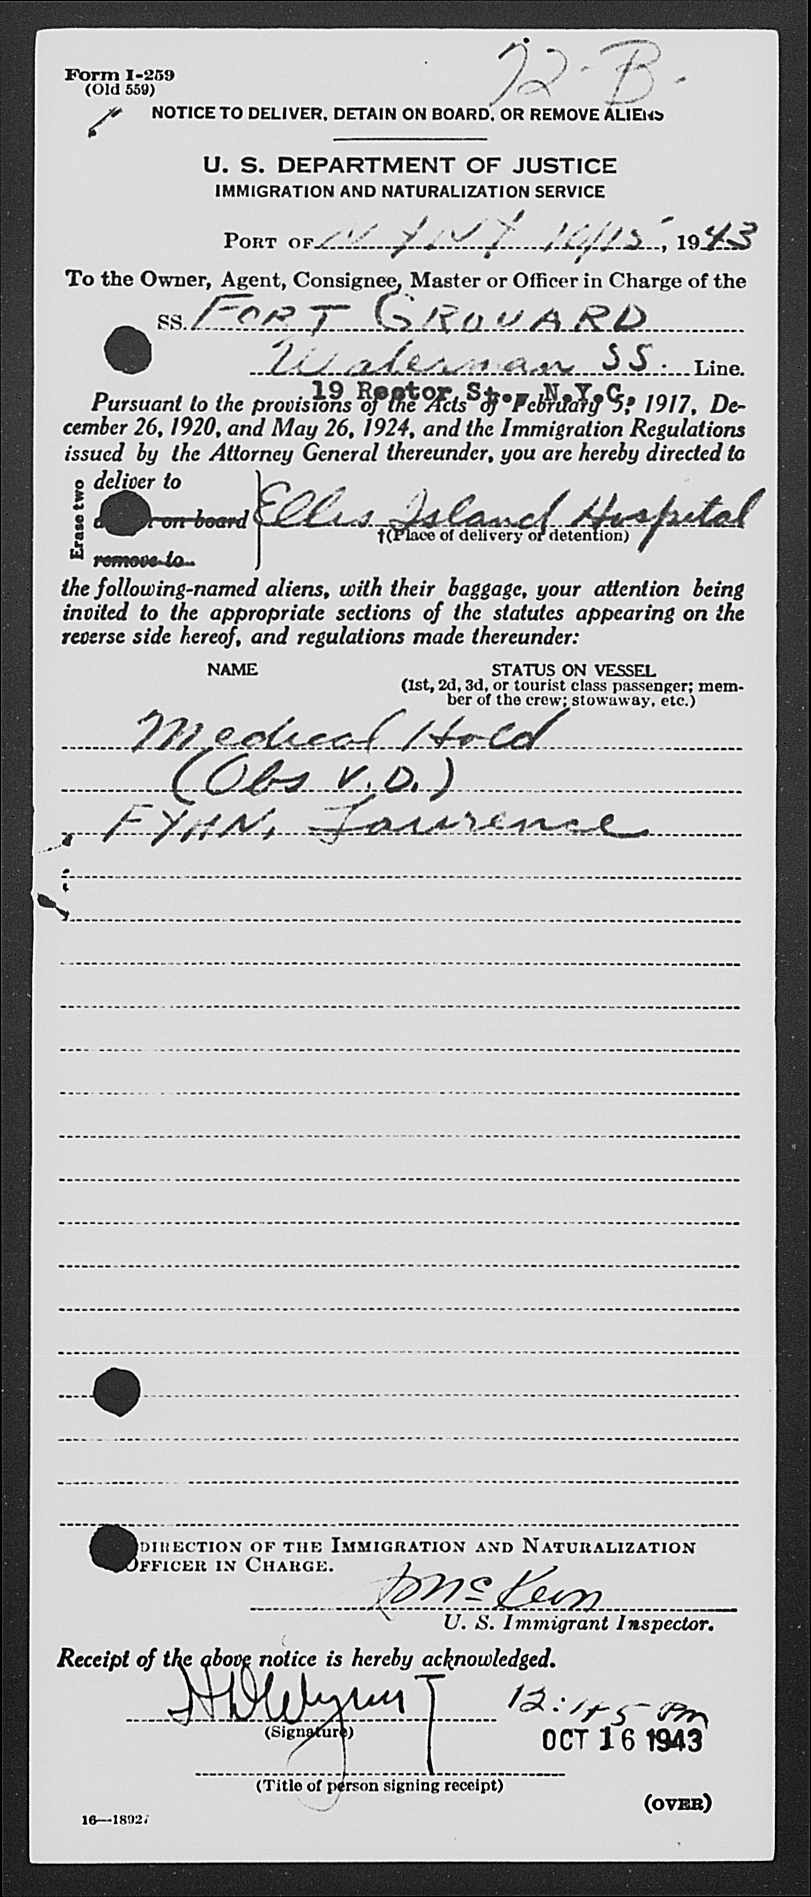 72-B-
Form I-259
(Old 559)
NOTICE TO DELIVER, DETAIN ON BOARD, OR REMOVE ALIENS
U. S. DEPARTMENT OF JUSTICE
IMMIGRATION AND NATURALIZATION SERVICE
PORT OF N Y N Y 10/15, 1943
To the Owner, Agent, Consignee, Master or Officer in Charge of the
SS. FORT GROUARD
Waterman SS. Line.
19 Rector St., N.Y.C.
Pursuant to the provisions of the Acts of February 5, 1917, De-
cember 26, 1920, and May 26, 1924, and the Immigration Regulations
issued by the Attorney General thereunder, you are hereby directed to
Erase two
deliver to
on board
remove to
Ellis Island Hospital
†(Place of delivery or detention)
the following-named aliens, with their baggage, your attention being
invited to the appropriate sections of the statutes appearing on the
reverse side hereof, and regulations made thereunder:
NAME STATUS ON VESSEL
(1st, 2d, 3d, or tourist class passenger; mem-
ber of the crew; stowaway, etc.)
Medical Hold
(Obs V.D.)
FYHN, Lawrence
DIRECTION OF THE IMMIGRATION AND NATURALIZATION
OFFICER IN CHARGE.
McKeon
U. S. Immigrant Inspector.
Receipt of the above notice is hereby acknowledged.
12:45 PM
(Signature)
OCT 16 1943
(Title of person signing receipt)
(OVER)
16—18927